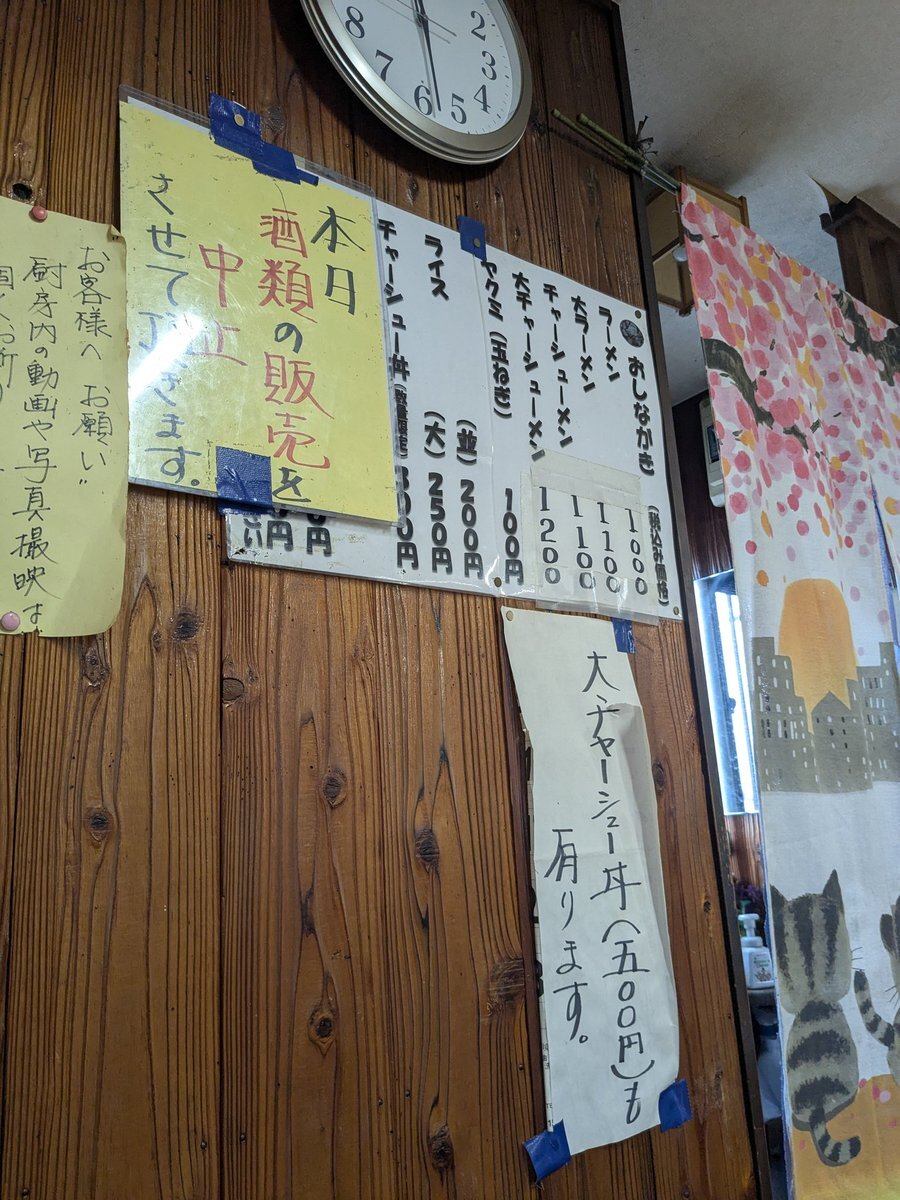 8
7
6
5
4
3
2
おしながき
(税込み価格)
ラーメン 1000
大ラーメン 1100
チャーシューメン 1100
大チャーシューメン 1200
ヤクミ(玉ねぎ) 100円
ライス (並) 200円
(大) 250円
チャーシュー丼(数量限定) 300円
円
円
本日
酒類の販売を
中止
させて頂きます。
お客様へ お願い
厨房内の動画や写真撮映は
大チャーシュー丼(五〇〇円)も
有ります。